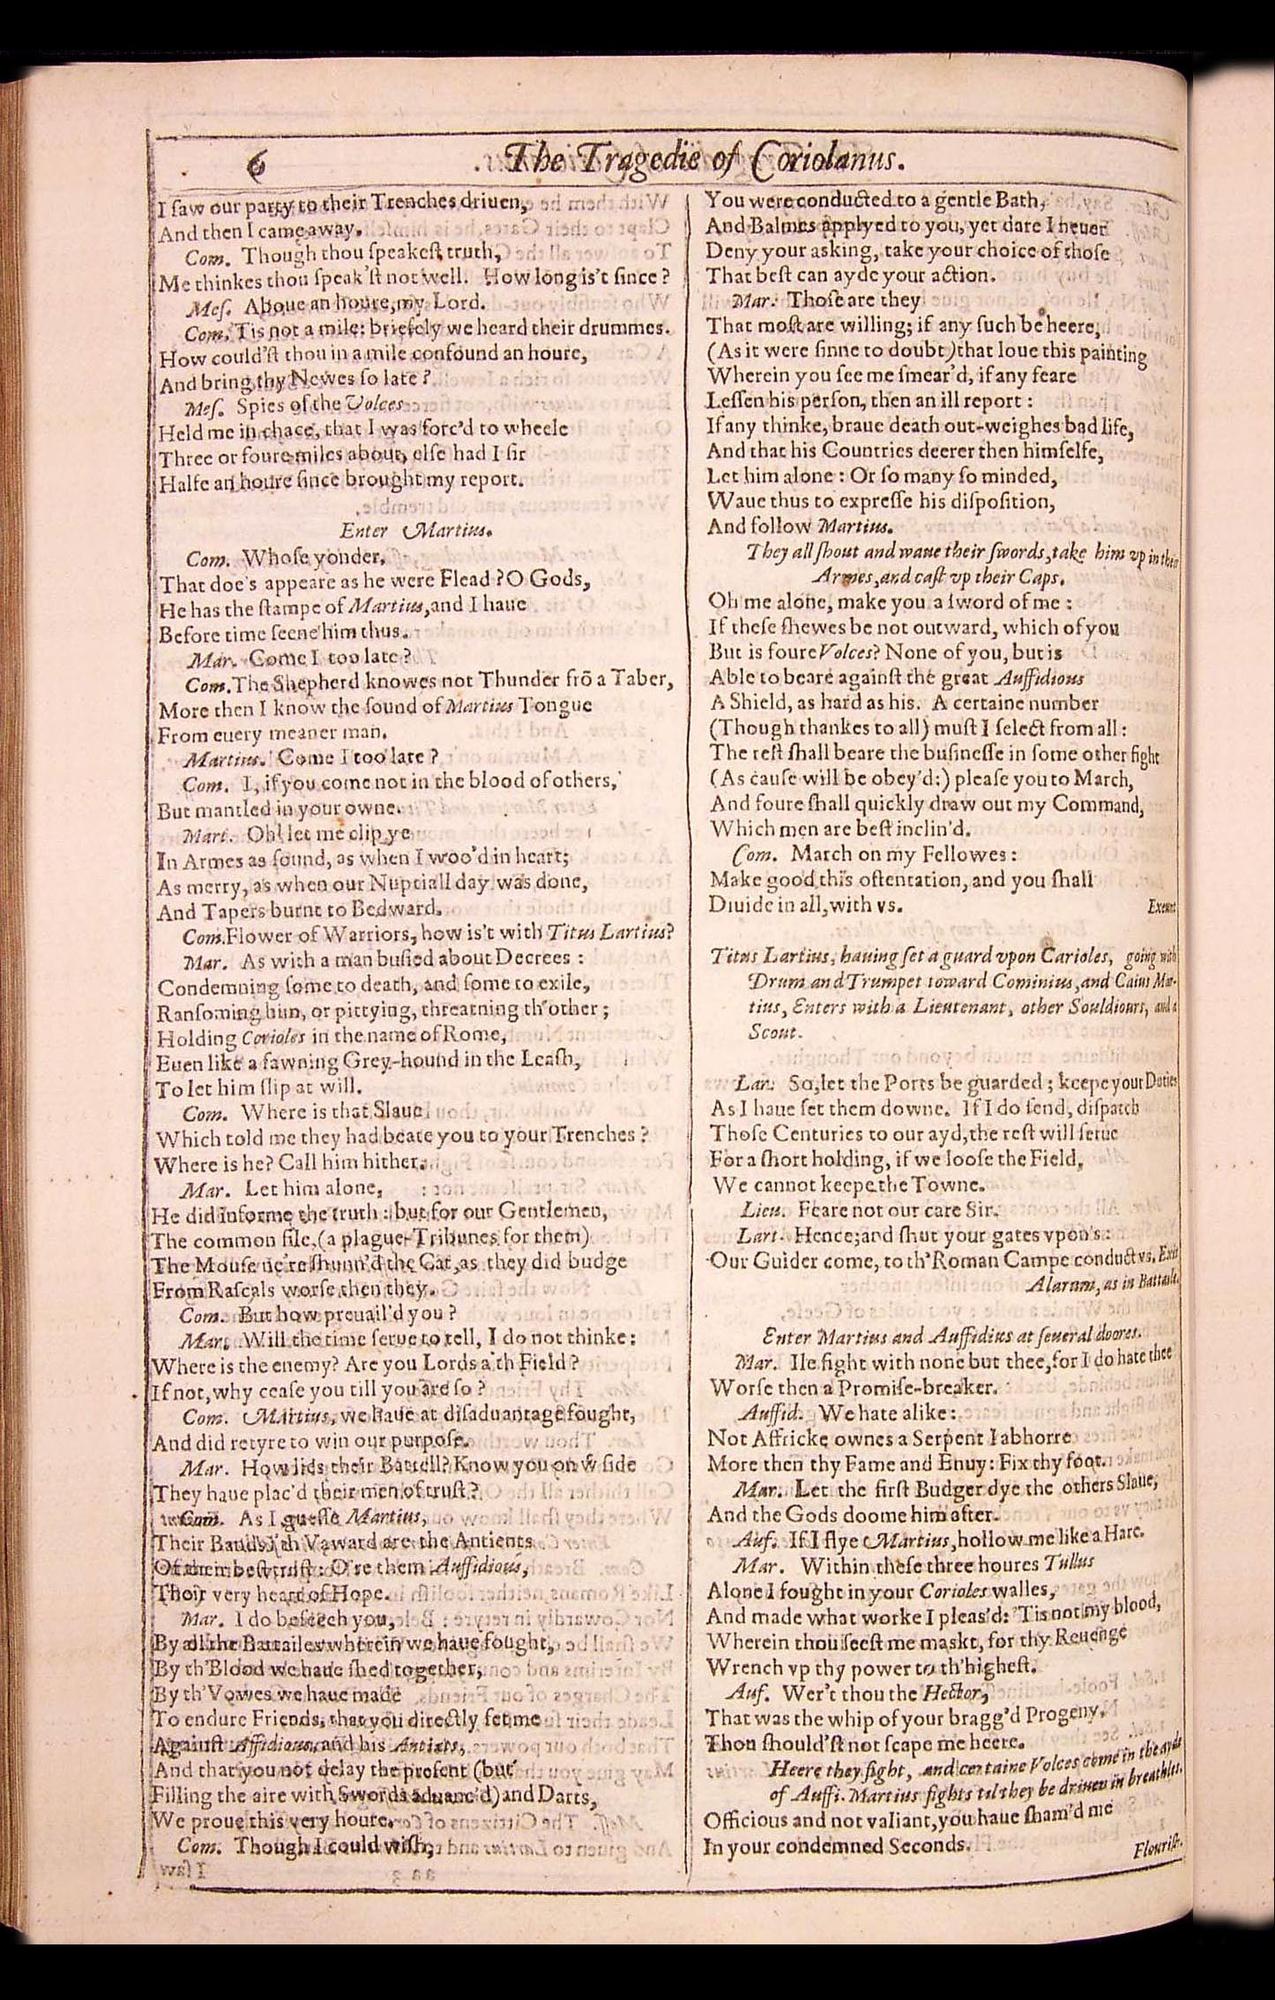 6 The Tragedie of Coriolanus.
I saw our party to their Trenches driuen,
And then I came away.
Com. Though thou speakest truth,
Me thinkes thou speak'st not well. How long is't since?
Mes. Aboue an houre, my Lord.
Com. 'Tis not a mile: briefely we heard their drummes.
How could'st thou in a mile confound an houre,
And bring thy Newes so late?
Mes. Spies of the Volces
Held me in chace, that I was forc'd to wheele
Three or foure miles about, else had I sir
Halfe an houre since brought my report.
Enter Martius.
Com. Whose yonder,
That doe's appeare as he were Flead? O Gods,
He has the stampe of Martius, and I haue
Before time seene him thus.
Mar. Come I too late?
Com. The Shepherd knowes not Thunder frõ a Taber,
More then I know the sound of Martius Tongue
From euery meaner man.
Martius. Come I too late?
Com. I, if you come not in the blood of others,
But mantled in your owne.
Mart. Oh! let me clip ye
In Armes as sound, as when I woo'd in heart;
As merry, as when our Nuptiall day was done,
And Tapers burnt to Bedward.
Com. Flower of Warriors, how is't with Titus Lartius?
Mar. As with a man busied about Decrees:
Condemning some to death, and some to exile,
Ransoming him, or pittying, threatning th'other;
Holding Corioles in the name of Rome,
Euen like a fawning Grey-hound in the Leash,
To let him slip at will.
Com. Where is that Slaue
Which told me they had beate you to your Trenches?
Where is he? Call him hither.
Mar. Let him alone,
He did informe the truth: but for our Gentlemen,
The common file, (a plague-Tribunes for them)
The Mouse ne're shunn'd the Cat, as they did budge
From Rascals worse then they.
Com. But how preuail'd you?
Mar. Will the time serue to tell, I do not thinke:
Where is the enemy? Are you Lords a'th Field?
If not, why cease you till you are so?
Com. Martius, we haue at disaduantage fought,
And did retyre to win our purpose.
Mar. How lies their Battell? Know you on w side
They haue plac'd their men of trust?
Com. As I guesse Martius,
Their Bands i'th Vaward are the Antients
Of their best trust: O're them Auffidious,
Their very heart of Hope.
Mar. I do beseech you,
By all the Battailes wherein we haue fought,
By th'Blood we haue shed together,
By th'Vowes we haue made
To endure Friends, that you directly set me
Against Affidious, and his Antiats,
And that you not delay the present (but
Filling the aire with Swords aduanc'd) and Darts,
We proue this very houre.
Com. Though I could wish,
You were conducted to a gentle Bath,
And Balmes applyed to you, yet dare I neuer
Deny your asking, take your choice of those
That best can ayde your action.
Mar. Those are they
That most are willing; if any such be heere,
(As it were sinne to doubt) that loue this painting
Wherein you see me smear'd, if any feare
Lessen his person, then an ill report:
If any thinke, braue death out-weighes bad life,
And that his Countries deerer then himselfe,
Let him alone: Or so many so minded,
Waue thus to expresse his disposition,
And follow Martius.
They all shout and waue their swords, take him vp in their
Armes, and cast vp their Caps.
Oh me alone, make you a sword of me:
If these shewes be not outward, which of you
But is foure Volces? None of you, but is
Able to beare against the great Auffidious
A Shield, as hard as his. A certaine number
(Though thankes to all) must I select from all:
The rest shall beare the businesse in some other fight
(As cause will be obey'd:) please you to March,
And foure shall quickly draw out my Command,
Which men are best inclin'd.
Com. March on my Fellowes:
Make good this ostentation, and you shall
Diuide in all, with vs. Exeunt
Titus Lartius, hauing set a guard vpon Carioles, going with
Drum and Trumpet toward Cominius, and Caius Mar-
tius, Enters with a Lieutenant, other Souldiours, and a
Scout.
Lar. So, let the Ports be guarded; keepe your Duties
As I haue set them downe. If I do send, dispatch
Those Centuries to our ayd, the rest will serue
For a short holding, if we loose the Field,
We cannot keepe the Towne.
Lieu. Feare not our care Sir.
Lart. Hence; and shut your gates vpon's:
Our Guider come, to th'Roman Campe conduct vs. Exit
Alarum, as in Battaile.
Enter Martius and Auffidius at seueral doores.
Mar. Ile fight with none but thee, for I do hate thee
Worse then a Promise-breaker.
Auffid. We hate alike:
Not Affricke ownes a Serpent I abhorre
More then thy Fame and Enuy: Fix thy foot.
Mar. Let the first Budger dye the others Slaue,
And the Gods doome him after.
Auf. If I flye Martius, hollow me like a Hare.
Mar. Within these three houres Tullus
Alone I fought in your Corioles walles,
And made what worke I pleas'd: 'Tis not my blood,
Wherein thou seest me maskt, for thy Reuenge
Wrench vp thy power to th'highest.
Auf. Wer't thou the Hector,
That was the whip of your bragg'd Progeny,
Thou should'st not scape me heere.
Heere they fight, and certaine Volces come in the ayde
of Auffi. Martius fights til they be driuen in breathles.
Officious and not valiant, you haue sham'd me
In your condemned Seconds. Flourish.